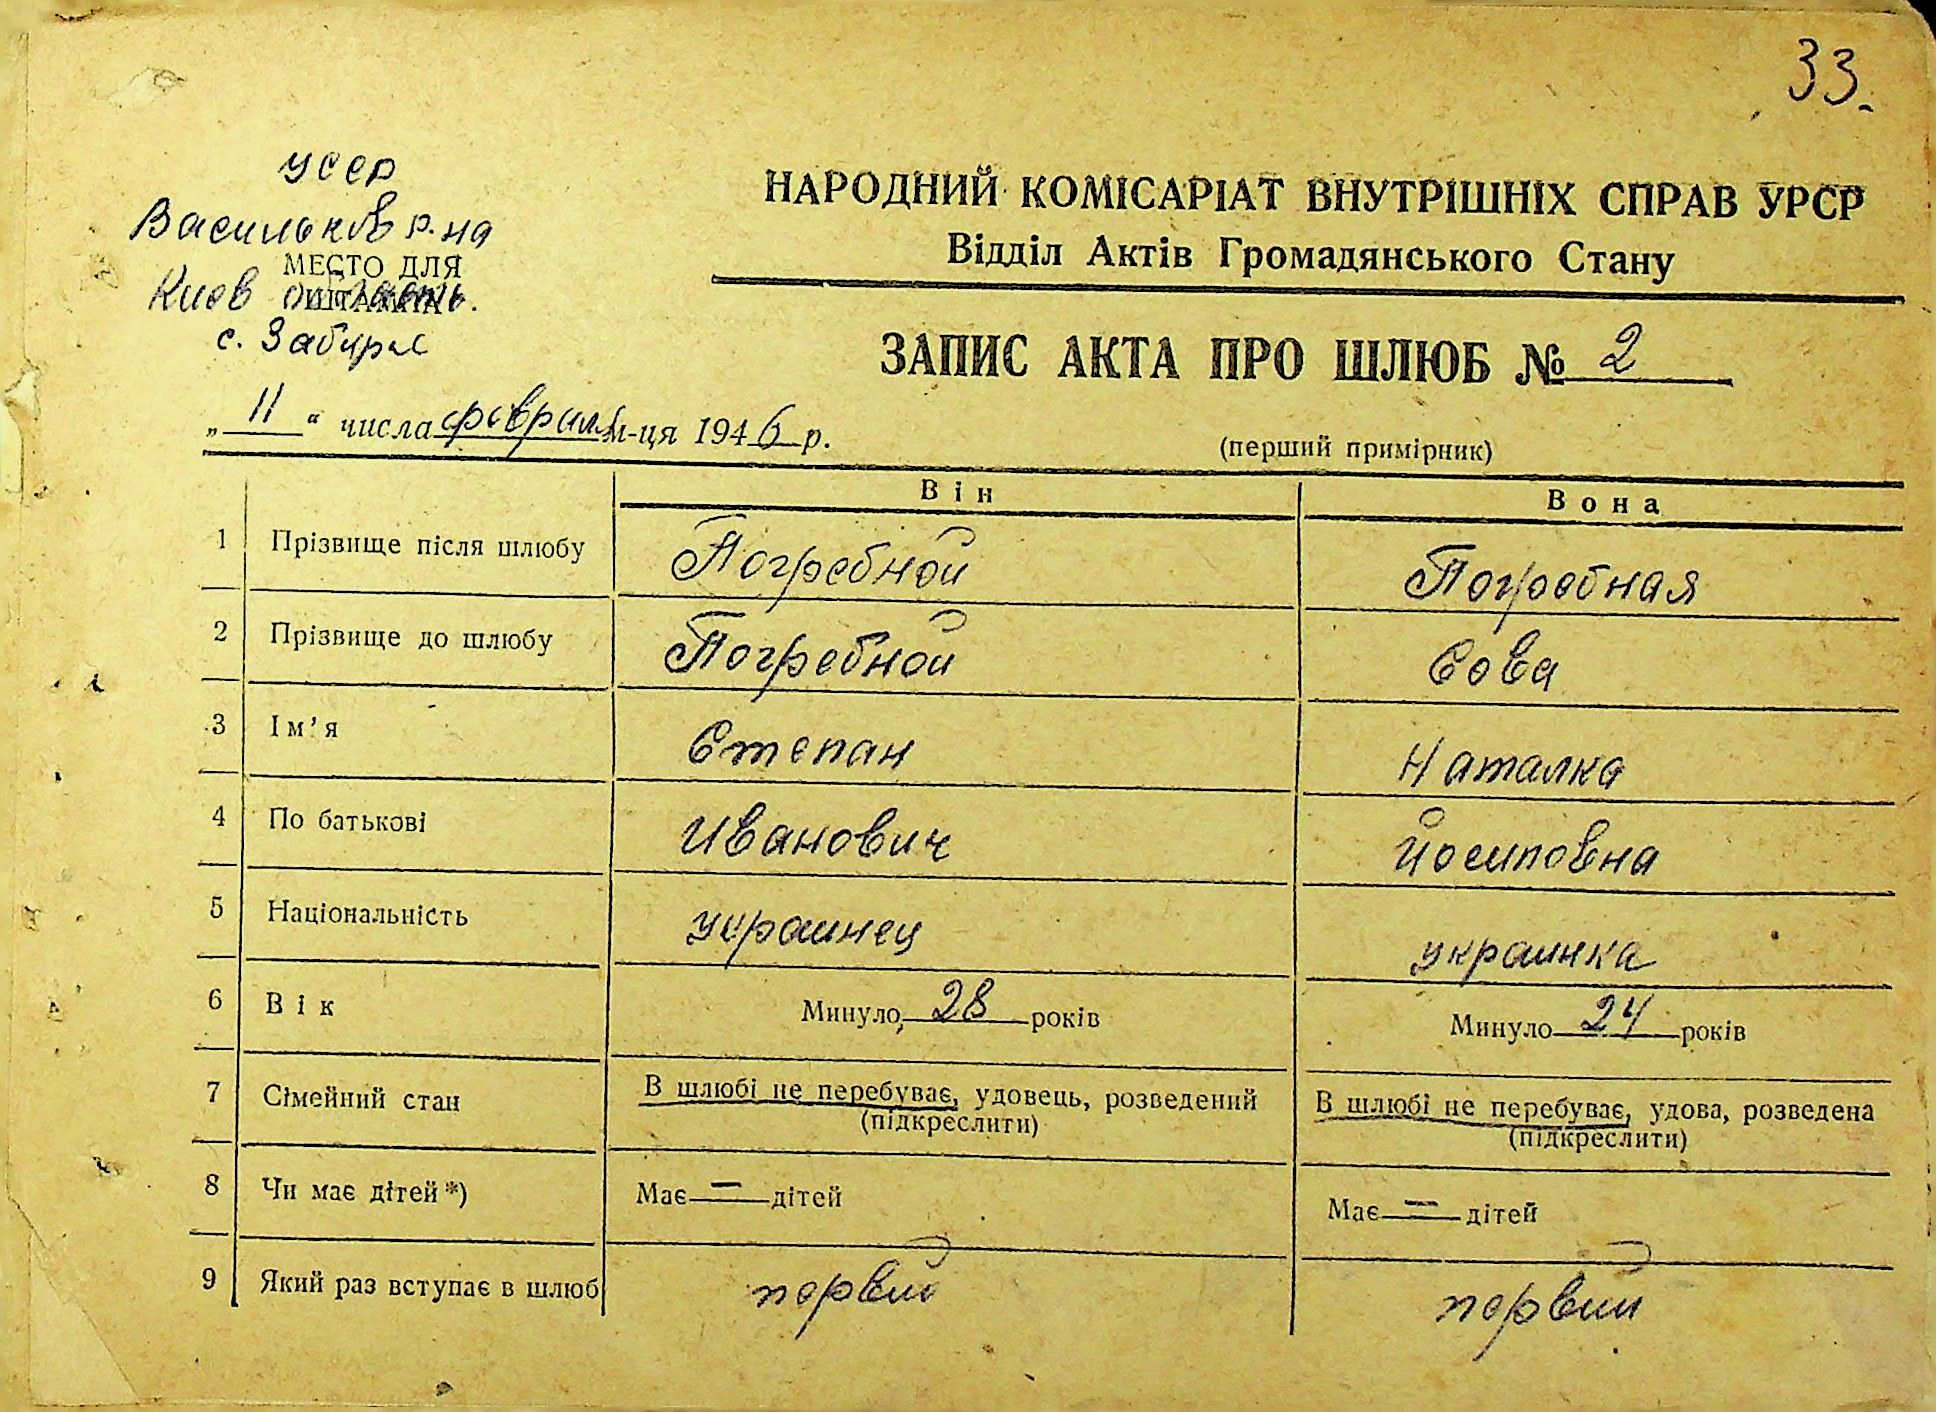 33.
УССР
Васильков р-на
МЕСТО ДЛЯ
Киев область.
ШТАМПА
с. Забирье
НАРОДНИЙ КОМІСАРІАТ ВНУТРІШНІХ СПРАВ УРСР
Відділ Актів Громадянського Стану
ЗАПИС АКТА ПРО ШЛЮБ № 2
„ 11 “ числа февраля м-ця 1946 р.
(перший примірник)
Він Вона
1 Прізвище після шлюбу Погребной Погребная
2 Прізвище до шлюбу Погребной Сова
3 Ім’я Степан Наталка
4 По батькові Иванович Йосиповна
5 Національність украинец украинка
6 Вік Минуло 28 років Минуло 24 років
7 Сімейний стан В шлюбі не перебуває, удовець, розведений В шлюбі не перебуває, удова, розведена
(підкреслити) (підкреслити)
8 Чи має дітей *) Має — дітей Має — дітей
9 Який раз вступає в шлюб первий первий